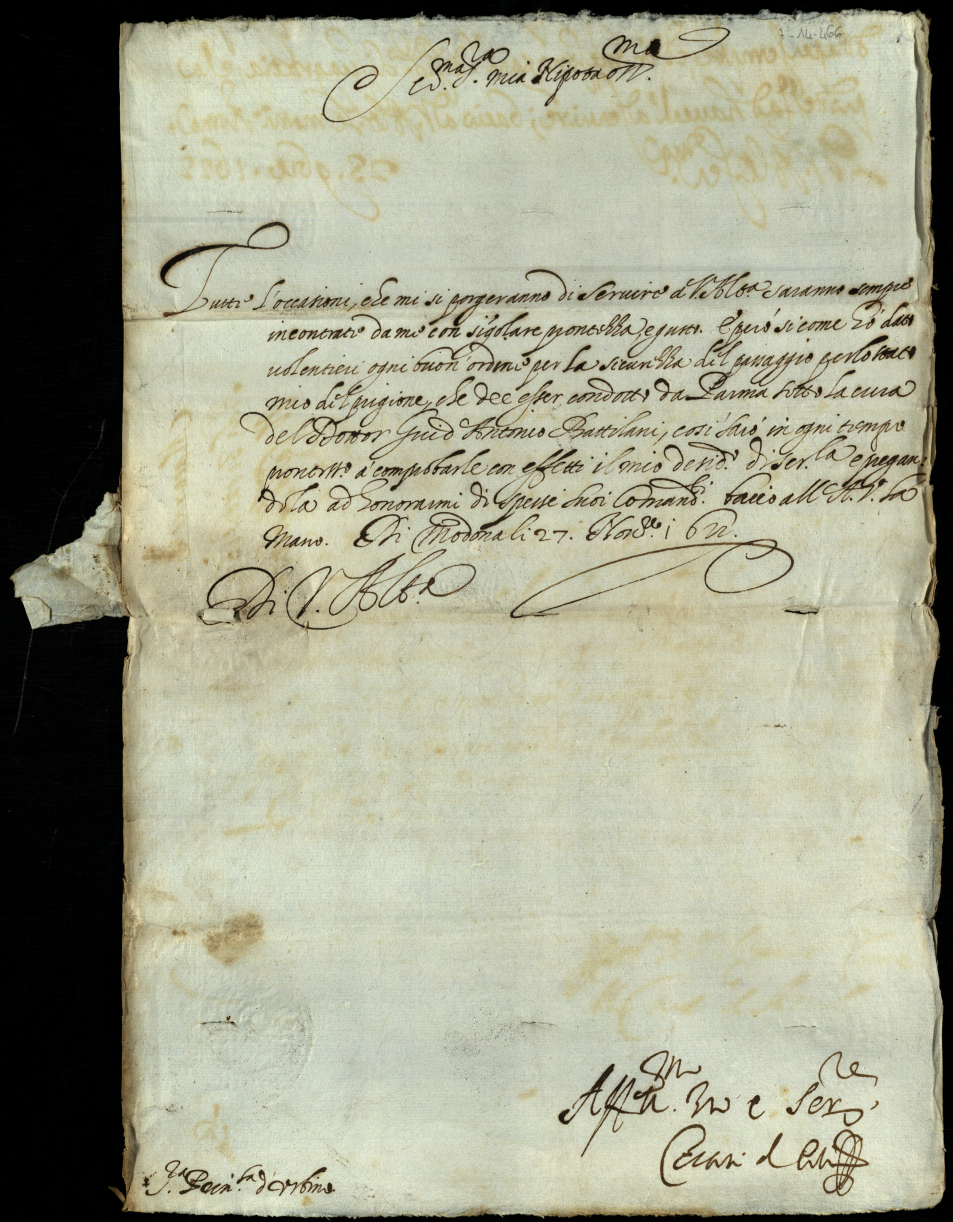 7-14-466
Ser.ma S.ra mia Nipote oss.ma
Tutte l'occasioni, che mi si porgeranno di Servire à V. Altza saranno sempre
incontrate da me con sigolare prontezza e gusto. E però si come hò dato
volentieri ogni buon' ordine per la sicurezza del passaggio per lo stato
mio del prigione, che dee esser condotto da Parma sotto la cura
del Dottor Guid' Antonio Battilani, così sarò in ogni tempo
pronto à comprobarle con effetti il mio desid.o di Ser.la e pregan=
dola ad honorarmi di spessi suoi Comand.i bacio all' A. V. la
mano. Di Modona li 27. Nov.re 162
Di V. Altza
Aff.mo Zio e Ser.re
Cesare d'Este
S.ra Prin.sa d'Urbino